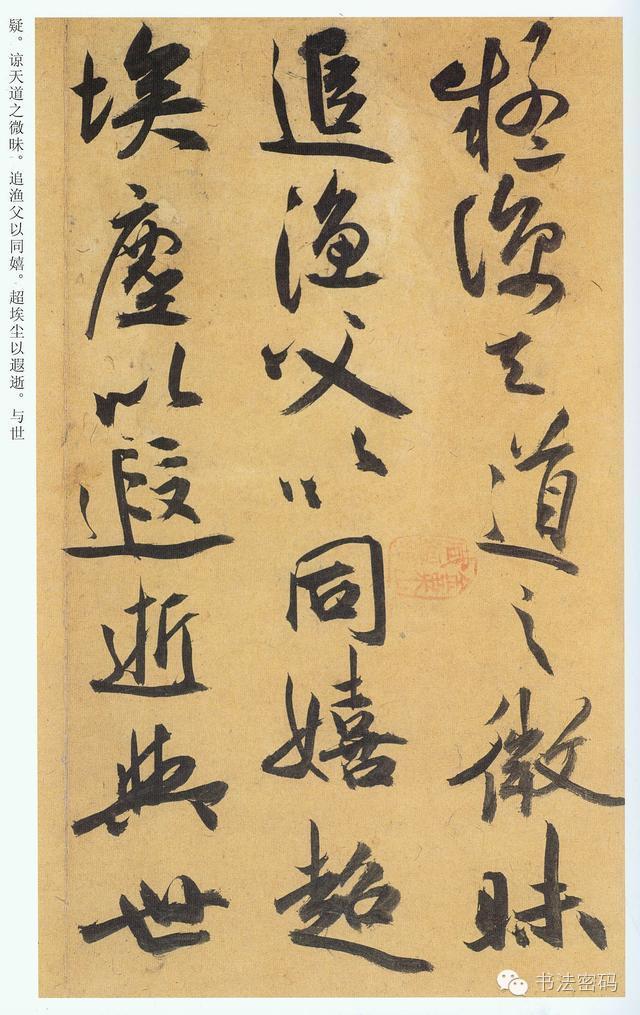 疑諒天道之微昧
追漁父以同嬉超
埃塵以遐逝與世
疑。谅天道之微昧。追渔父以同嬉。超埃尘以遐逝。与世
书法密码